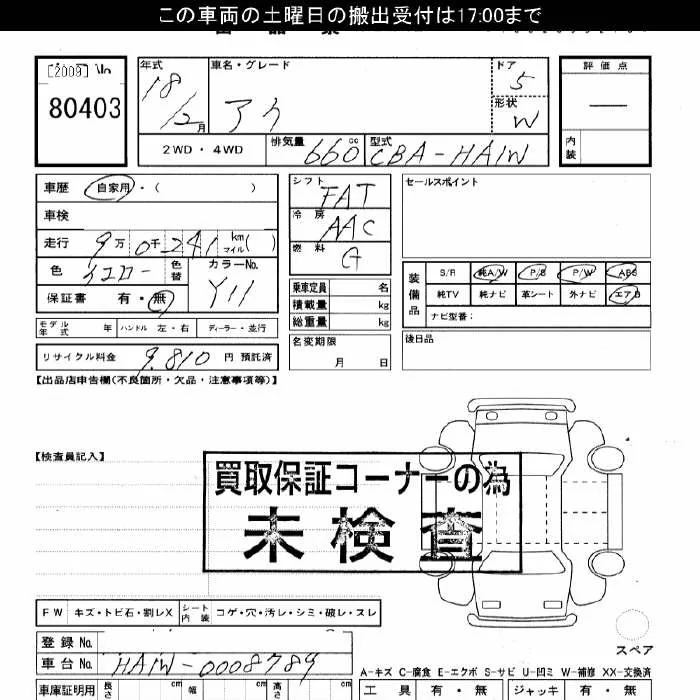 この車両の土曜日の搬出受付は17:00まで
[2009] No
80403
年式 18/12月
車名・グレード アイ
ドア 5
形状 W
評価点 ―
内装
2WD・4WD
排気量 660cc
型式 CBA-HA1W
車歴 自家用・( )
車検
走行 9万0千241km マイル( )
色 イエロー 色替
カラーNo. Y11
保証書 有・無
モデル年式 年 ハンドル 左・右 ディーラー・並行
リサイクル料金 9.810 円 預託済
シフト FAT
冷房 AAC
燃料 G
乗車定員 名
積載量 kg
総重量 kg
名変期限 月 日
セールスポイント
装備品
S/R 純A/W P/S P/W ABS
純TV 純ナビ 革シート 外ナビ エアB
ナビ型番:
後日品
【出品店申告欄(不良箇所・欠品・注意事項等)】
【検査員記入】
買取保証コーナーの為
未検査
スペア
FW キズ・トビ石・割レX シート内装 コゲ・穴・汚レ・シミ・破レ・スレ
登録No.
車台No. HA1W-0008789
A-キズ C-腐食 E-エクボ S-サビ U-凹ミ W-補修 XX-交換済
車庫証明用 長さ cm 幅 cm 高さ cm
工具 有・無 ジャッキ 有・無